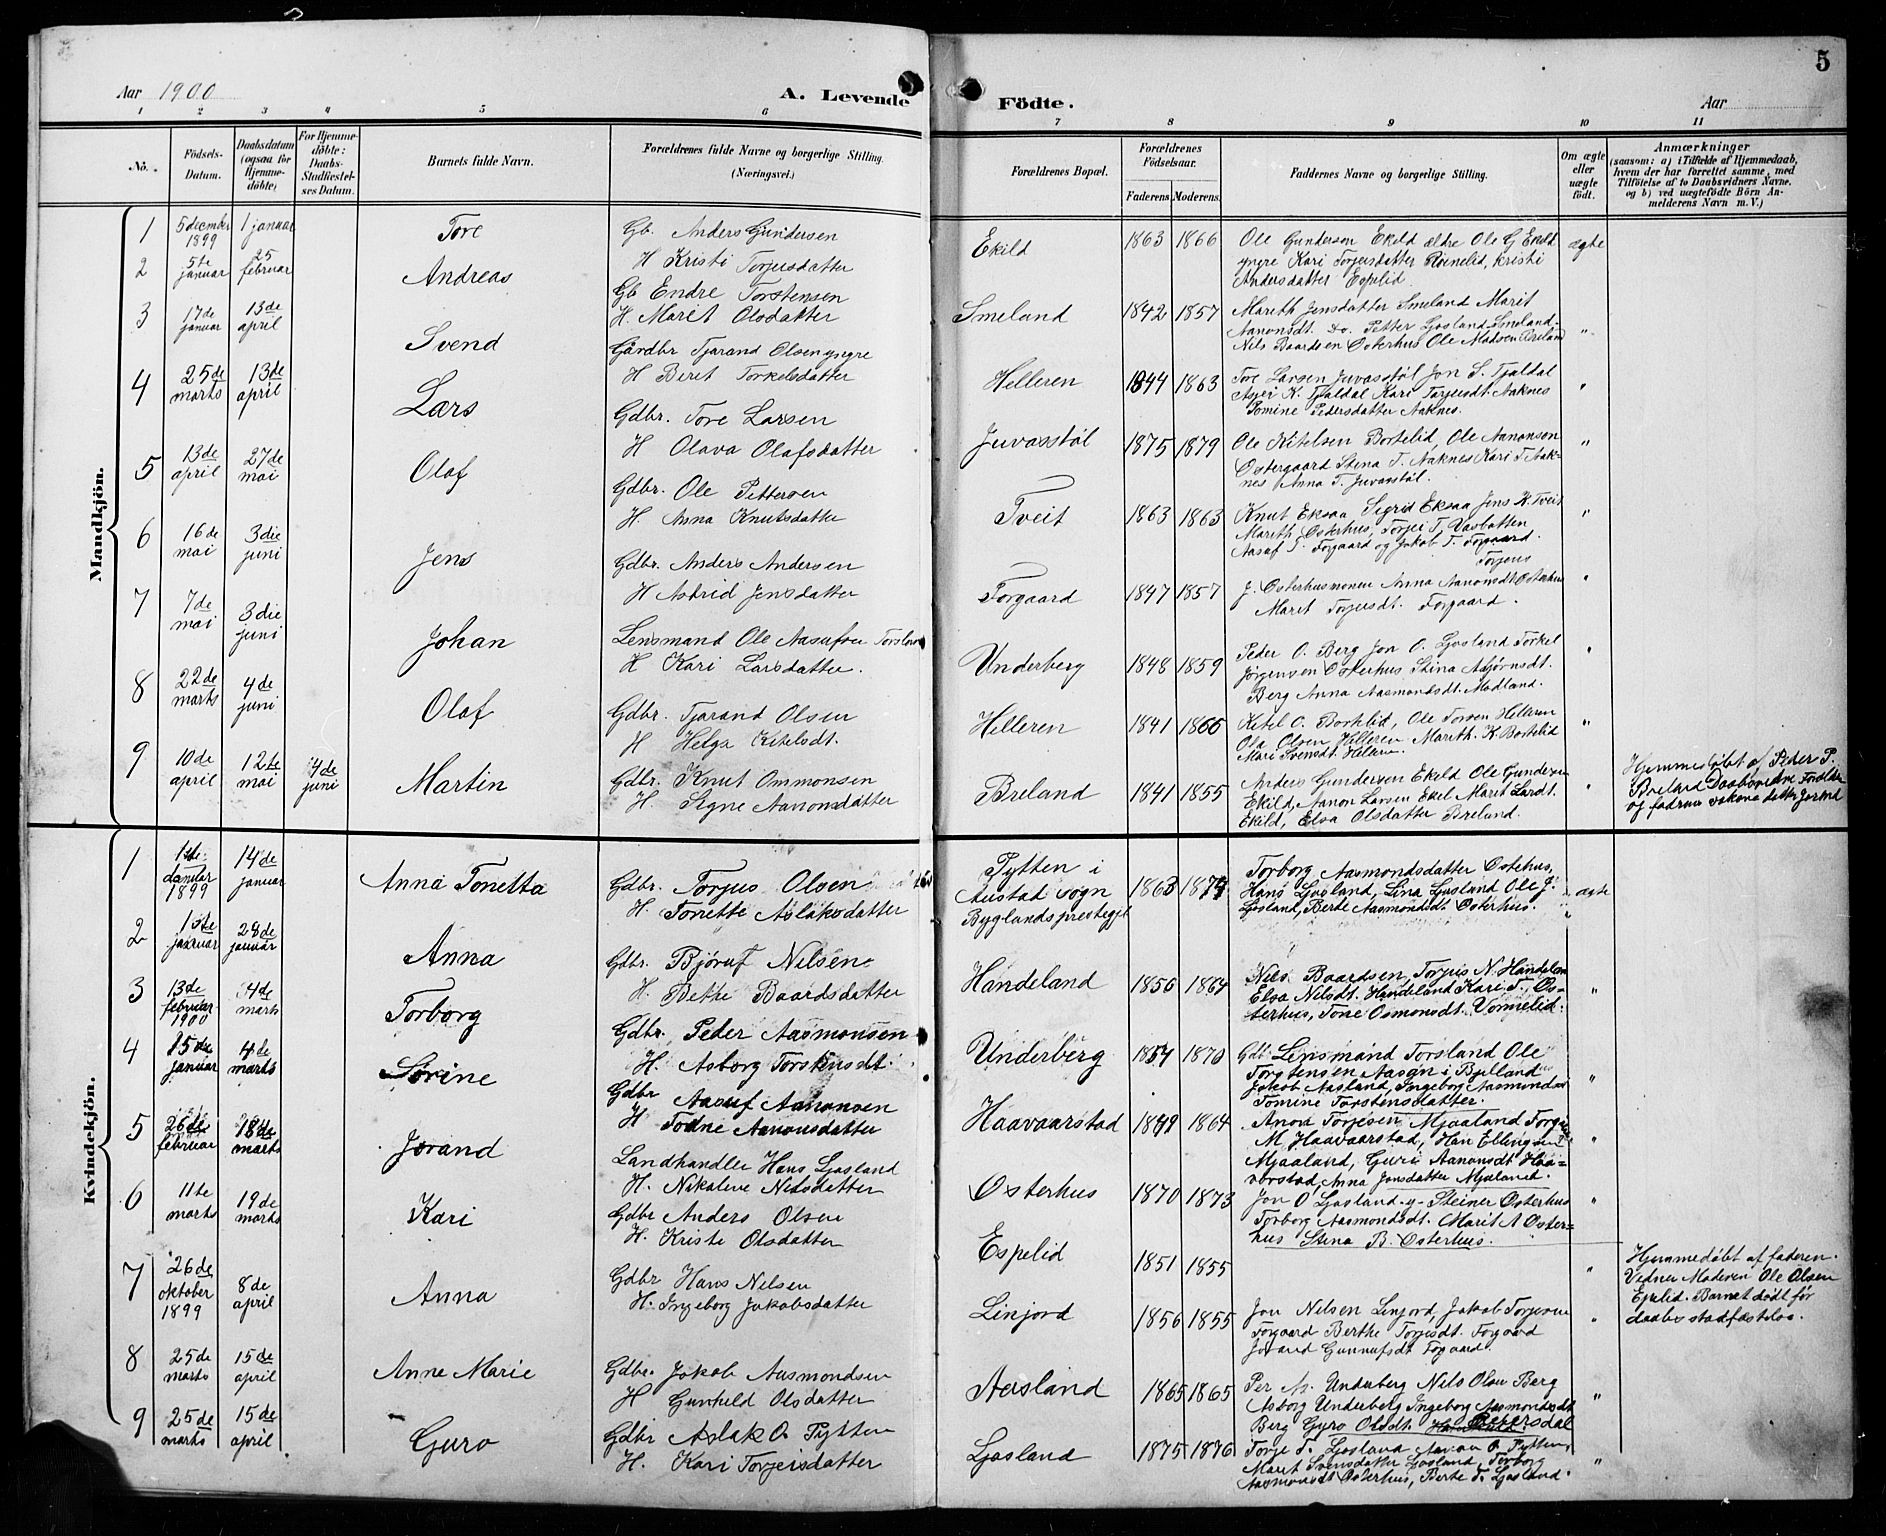 5
Aar 1900
A. Levende
Födte.
Aar
1 2 3 4 5 6 7 8 9 10 11
No.
Födsels-Datum.
Daabsdatum (ogsaa för Hjemmedöbte)
For Hjemmedöbte: Daabs-Stadfæstelses Datum.
Barnets fulde Navn.
Forældrenes fulde Navne og borgerlige Stilling. (Næringsvei.)
Forældrenes Bopæl.
Forældrenes Födselsaar.
Faderens Moderens.
Faddernes Navne og borgerlige Stilling.
Om ægte eller uægte födt.
Anmærkninger
(saasom: a) i Tilfælde af Hjemmedaab,
hvem der har forrettet samme, med
Tilföielse af to Daabsvidners Navne.
og b) ved uægtefödte Börn An-
melderens Navn m. V.)
Mandkjön.
1 5 december 1899 1 januar Tore
Gb. Anders Gundersen
H Kristi Torjusdatter
Ekild 1863 1866
Ole Gunderson Ekild ældre Ole G Ekild
yngre Kari Torjeusdatter Røinelid, Kristi
Andersdatter Espelid
ægte
2 5te januar 25 februar Andreas
Gb Endre Torstensen
H. Maret Olsdatter
Smeland 1842 1857
Mareth Jensdatter Smeland Marit
Aanonsdt. do. Petter Ljosland Smeland
Nils Baardsen Osterhus Ole Madsen Breland
"
3 17de januar 13de april Svend
Gårdbr Tjarand Olsen yngre
H Beret Torkelsdatter
Helleren 1844 1863
Tore Larsen Juvasstøl Jon S. Tjaldal
Asjer K. Tjaldal Kari Torjeusdt. Aaknes
Tomine Pedersdatter Aaknes.
"
4 25de marts 13de april Lars
Gdbr. Tore Larsen
H Olava Olafsdatter
Juvasstøl 1875 1879
Ole Ketelsen Bortelid, Ole Aanonsen
Ostergaard Stena T. Aaknes Kari T. Aak-
nes Anna T. Juvasstøl.
"
5 13de april 27de mai Olaf
Gdbr. Ole Pettersen
H. Anna Knutsdatter
Tveit 1863 1863
Knut Eksaa Sigrid Eksaa Jens K. Tveit
Mareth Osterhus, Torjei T.
Aasuf T. Forgaard og Jakob T. Forgaard.
"
6 16de mai 3die juni Jens
Gdbr. Anders Andersen
H Astrid Jensdatter
Forgaard 1847 1857
Torjeus
J. Osterhusmonen Anna Aanonsdt Osterhus
Maret Torjusdt. Forgaard.
"
7 7de mai 3die juni Johan
Lensmand Ole Aasufsen Torsland
H Kari Larsdatter.
Underberg 1848 1859
Peder O. Berg Jon O. Ljosland Torkel
Jörgensen Osterhus Stina Asjörnsdt.
Berg Anna Aasmondsdt. Modland.
"
8 22de marts 4de juni Olaf
Gdbr. Tjarand Olsen
H Helga Ketelsdt.
Helleren 1841 1866
Ketel O. Bortelid, Ole Torsen Helleren
Ola Olsen Helleren Mareth K. Bortelid
Mari Svensdt. Helleren.
"
9 10de april 12te mai 4de juni Martin
Gdbr. Knut Ommonsen
H. Signe Aanonsdatter
Breland 1841 1855
Anders Gundersen Ekild Ole Gundersen
Ekild, Aanon Larsen Ekel Marit Larsdt.
Ekild, Elsa Olsdatter Breland.
"
Hjemmedøbt af Peder P.
Breland Daabsvidne
og fadrene
Kvindekjön.
1 14de januar Anna Tonetta
1899
Gdbr. Torjus Olsen
H. Tonette Aslaksdatter
Pytten i
Austad sogn
Byglandsprestegjel
1863 1874
Torborg Aasmondsdatter Ostehus,
Hans Ljosland, Lina Ljosland Ole J.
Ljosland, Berte Aasmondsdt Osterhus.
ægte
2 13te januar 28de januar Anna
Gdbr. Bjøruf Nilsen
H. Bethe Baardsdatter
Handeland 1856 1864
Nils Baardsen, Torjus N. Handeland
Elsa Nilsdt. Handeland Kari T. Os-
terhus, Tone Osmonsdt. Vormelid.
"
3 13de februar 1900 4de marts Torborg
Gdbr. Peder Aasmonsen
H. Asborg Torstensdt.
Underberg 1854 1870
Gdb Lensmand Torsland Ole
Torstensen Aasen i Bjelland
Jakob Aasland, Ingeborg Aasmondsdt
Tomine Torstensdatter.
"
4 15de januar 4de marts Sörine
Gdbr Aasuf Aanonsen
H Todne Aanonsdatter
Haavaarstad 1849 1864
Anora Torjesen Mjaaland Torje
M. Haavaarstad, Han Ellingsen
Mjaaland, Guri Aanonsdt Haa-
vorstad, Anna Jonsdatter Mjaaland.
"
5 26de februar 18de marts Jorand
Landhandler Hans Ljosland
H. Nikolene Nilsdatter
Osterhus 1870 1873
Jon O Ljosland y Steiner Osterhus
Torborg Aasmondsdt. Marit A Oster-
hus Stena B. Osterhus.
"
6 11te marts 19de marts Kari
Gdbr Anders Olsen
H. Kriste Olsdatter
Espelid 1851 1855
"
Hjemmedøbt af faderen.
Vidner Moderen Ole Olsen
Espelid. Barnet dødt før
daabsstadfæstelse.
7 26de oktober 1899 8de april Anna
Gdbr Hans Nilsen
H. Ingeborg Jakobsdatter
Linjord 1856 1855
Jon Nilsen Linjord, Jakob Torjesen
Forgaard Berthe Torjesdt. Forgaard
Jorand Gunnufsdt Fogaard.
"
8 25de marts 15de april Anne Marie
Gdbr. Jakob Aasmondsen
H Gunheld Olsdatter
Aasland 1865 1865
Per A. Underberg Nils Olsen Berg
Asborg Underberg Ingeborg Aasmondsdt
Berg Gyro Olsdt.
"
9 25de marts 15de april Guro
Gdbr Aslak O. Pytten
H. Kari Torjeisdatter
Ljosland 1875 1876
Torje T. Ljosland Aanon O. Pytten,
Maret Svensdatter Ljosland, Torborg
Aasmonsdt Osterhus, Berte T. Ljosland.
"